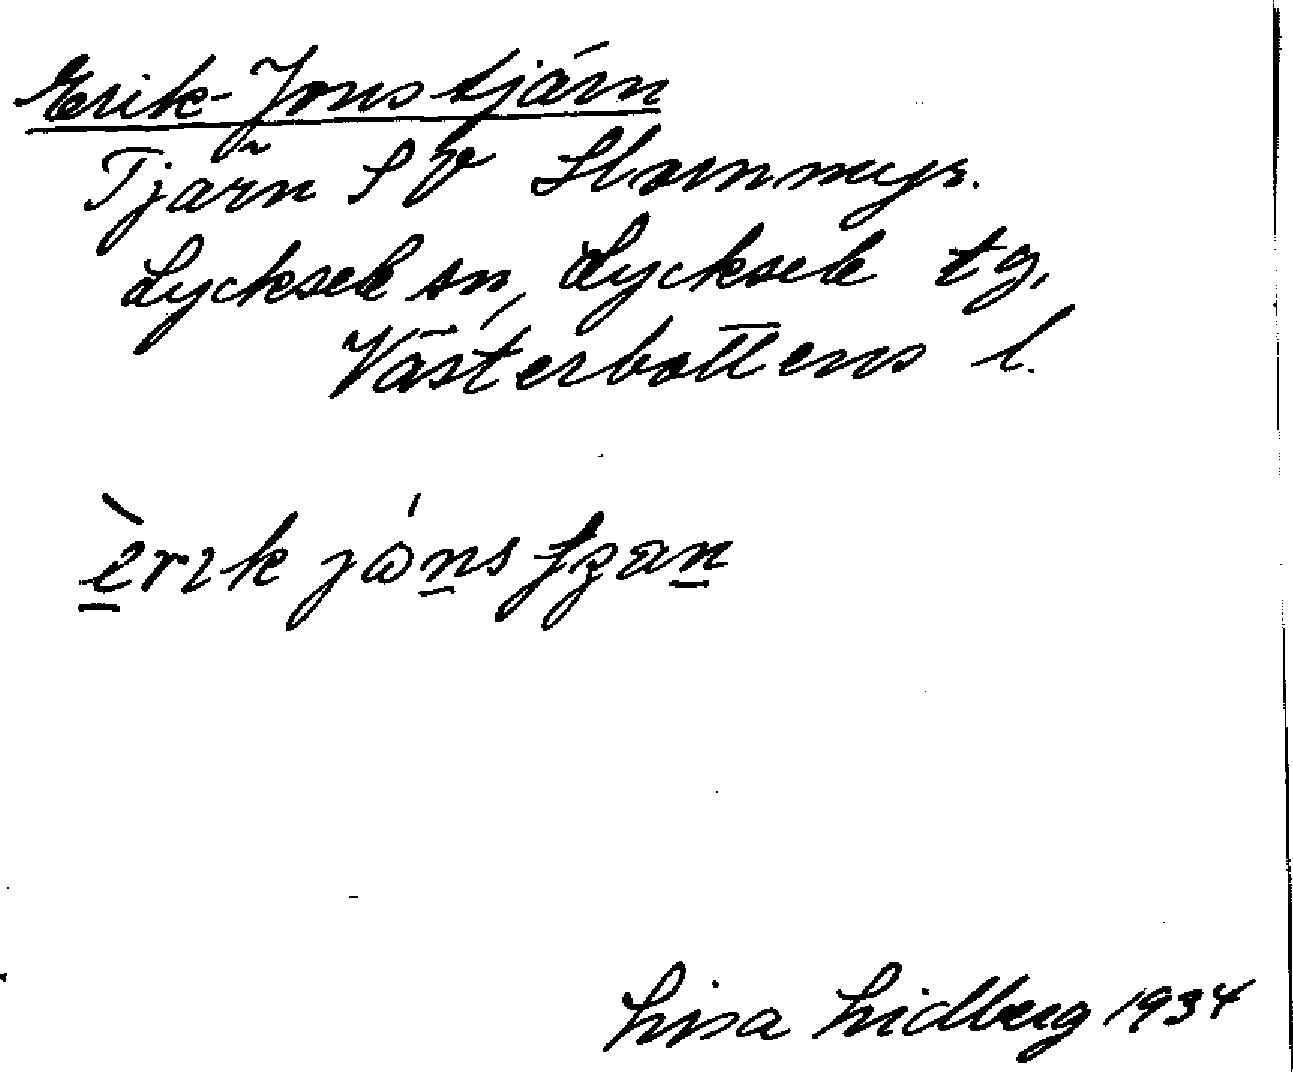 Erik-Jonstjärn
Tjärn SV Stommyr.
Lycksele sn, Lycksele tg,
Västerbottens l.
Lisa Lidberg 1934